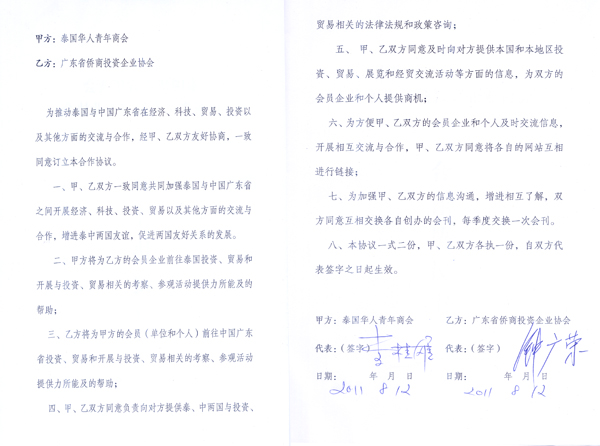 甲方：泰国华人青年商会
乙方：广东省侨商投资企业协会
为推动泰国与中国广东省在经济、科技、贸易、投资以
及其他方面的交流与合作，经甲、乙双方友好协商，一致
同意订立本合作协议。
一、甲、乙双方一致同意共同加强泰国与中国广东省
之间开展经济、科技、投资、贸易以及其他方面的交流与
合作，增进泰中两国友谊，促进两国友好关系的发展。
二、甲方将为乙方的会员企业前往泰国投资、贸易和
开展与投资、贸易相关的考察、参观活动提供力所能及的
帮助；
三、乙方将为甲方的会员（单位和个人）前往中国广东
省投资、贸易和开展与投资、贸易相关的考察、参观活动
提供力所能及的帮助；
四、甲、乙双方同意负责向对方提供泰、中两国与投资、
贸易相关的法律法规和政策咨询；
五、甲、乙双方同意及时向对方提供本国和本地区投
资、贸易、展览和经贸交流活动等方面的信息，为双方的
会员企业和个人提供商机；
六、为方便甲、乙双方的会员企业和个人及时交流信息，
开展相互交流与合作，甲、乙双方同意将各自的网站互相
进行链接；
七、为加强甲、乙双方的信息沟通，增进相互了解，双
方同意互相交换各自创办的会刊，每季度交换一次会刊。
八、本协议一式二份，甲、乙双方各执一份，自双方代
表签字之日起生效。
甲方：泰国华人青年商会
代表：（签字）李桂雄
日期： 年 月 日
2011 8 12
乙方：广东省侨商投资企业协会
代表：（签字）钟广荣
日期： 年 月 日
2011 8 12